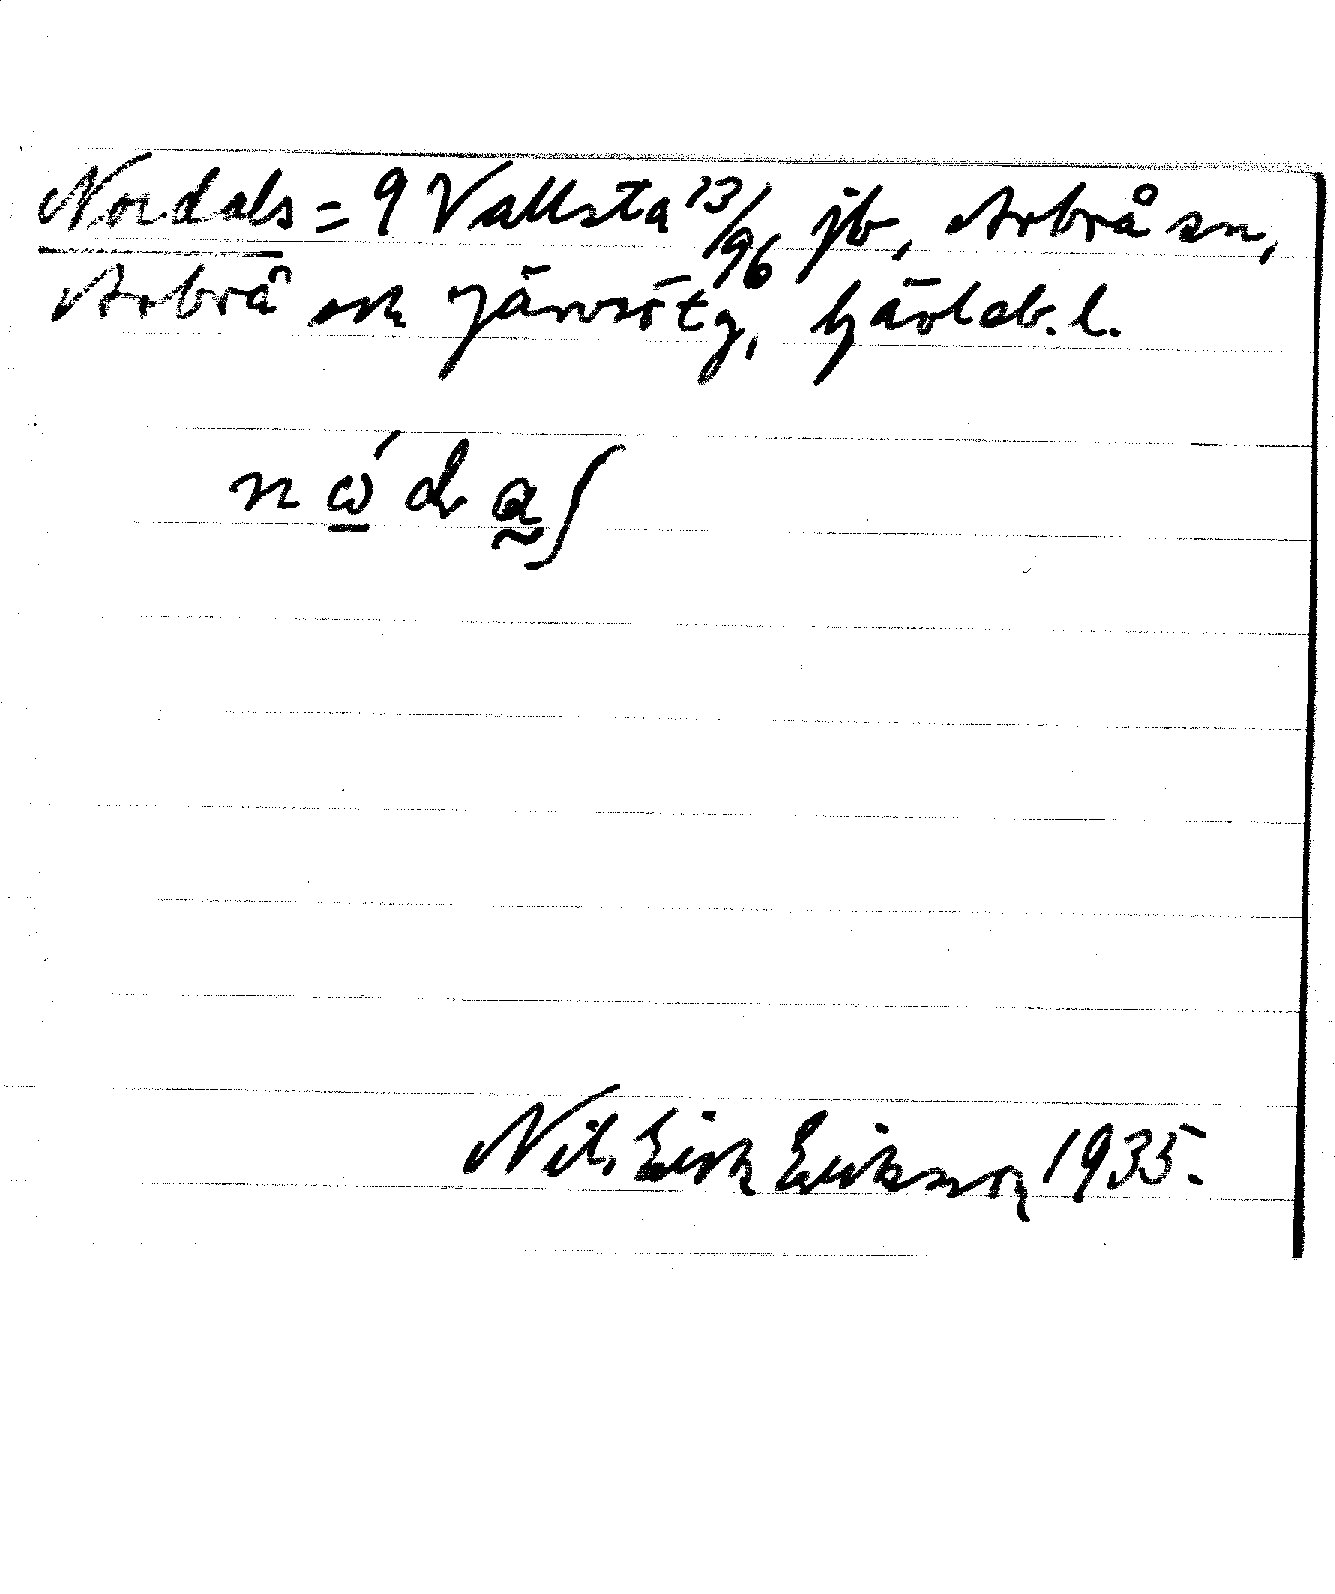 Nordals = 9 Vallsta 13/96 jb, Arbrå sn,
Arbrå och Järvsö tg, Gävleb. l.
nώda̰ʃ
Nils Erik Eriksson 1935.